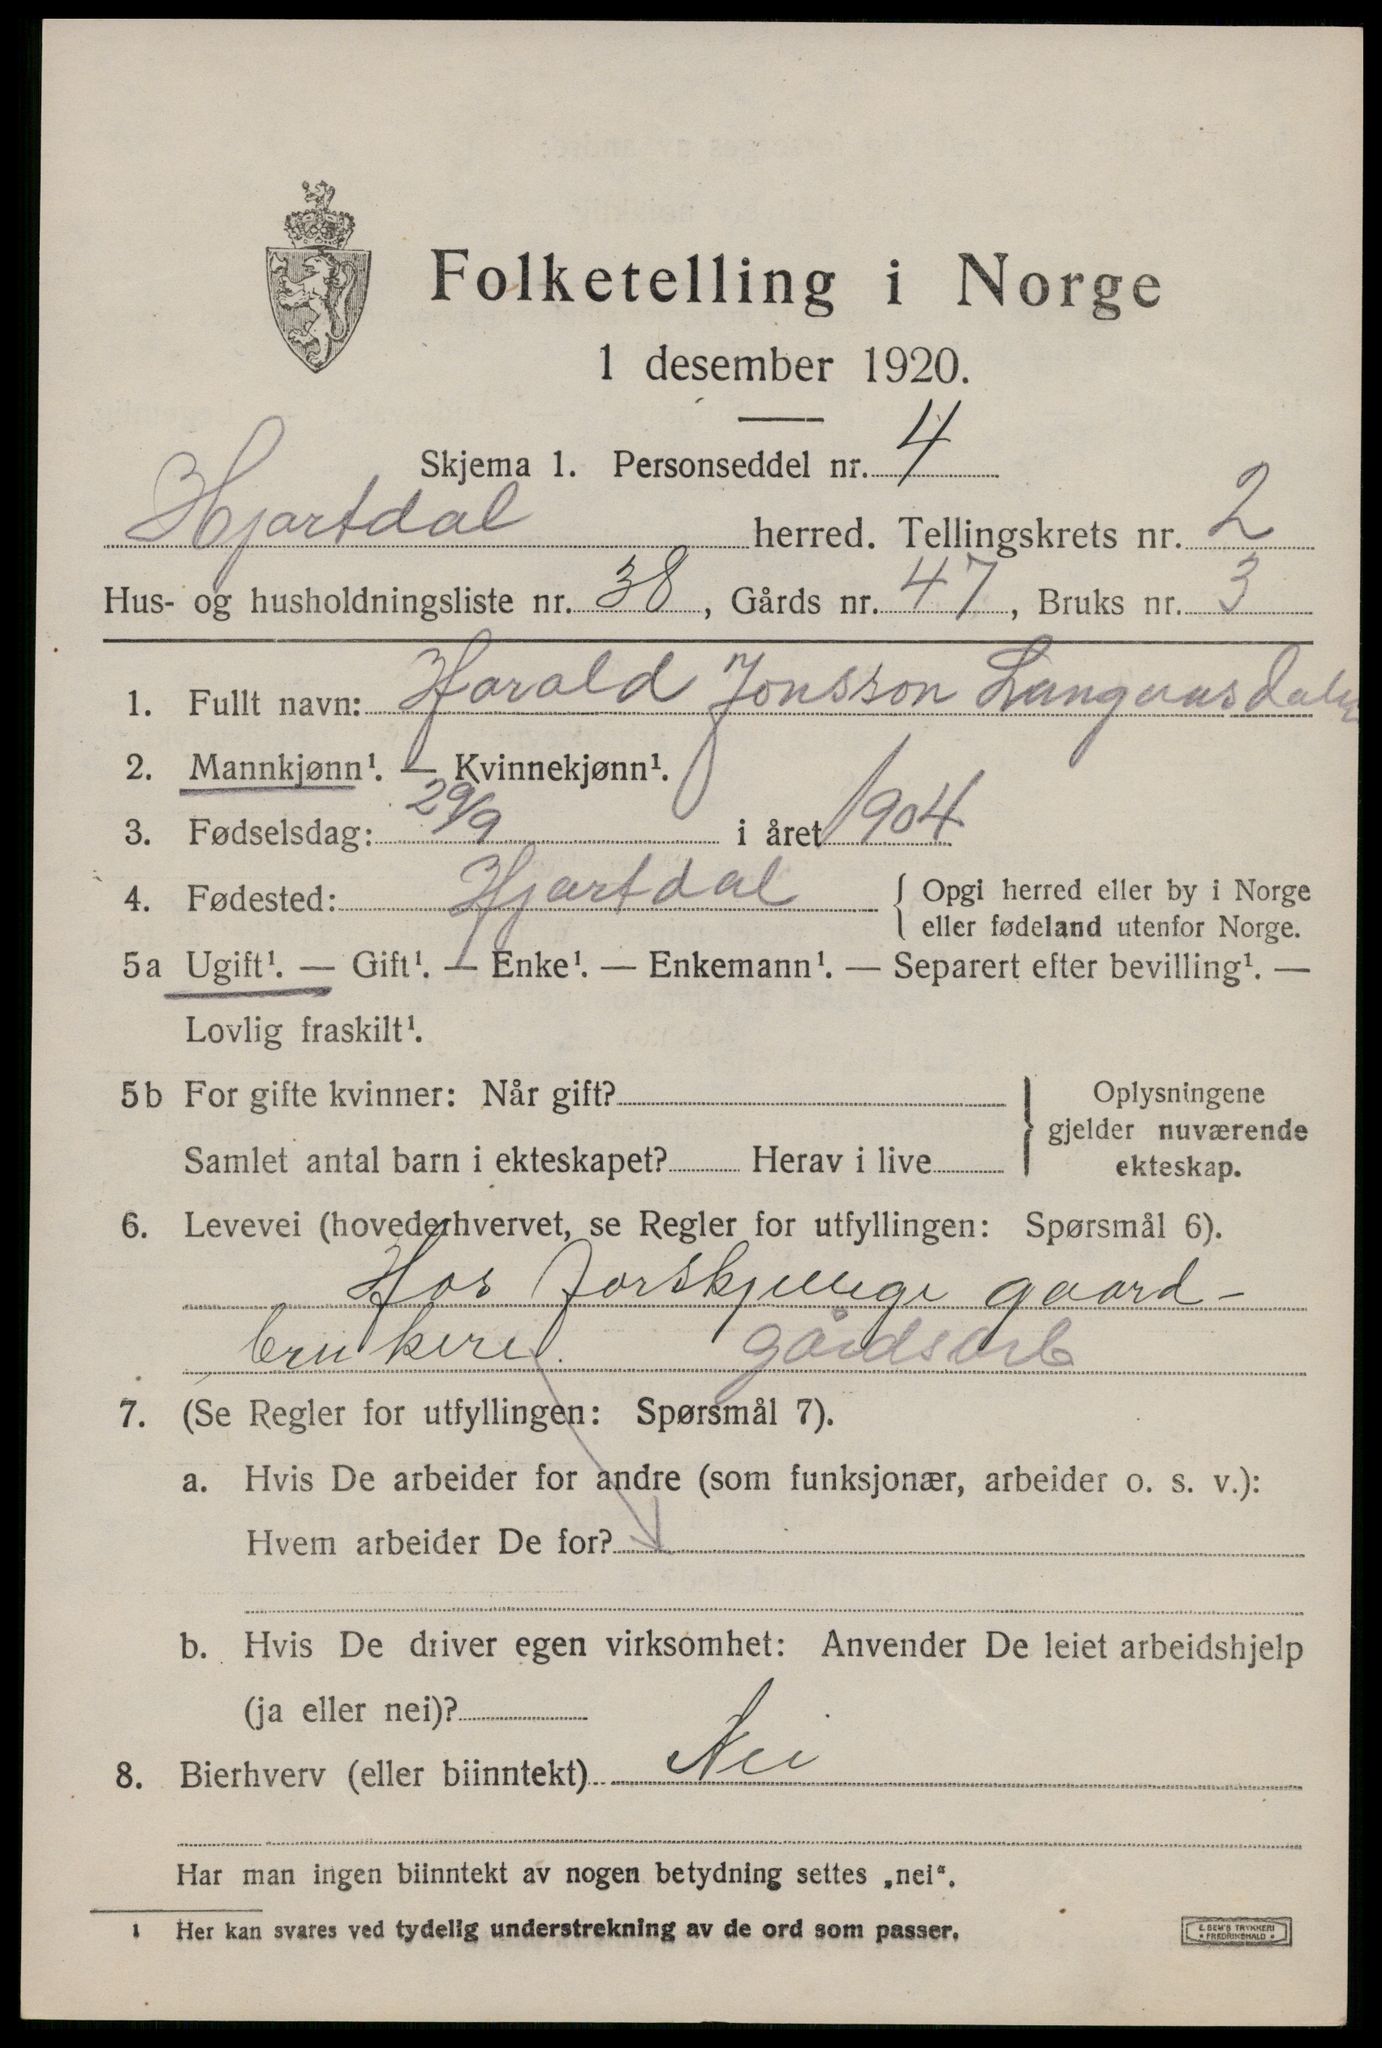 Folketelling i Norge
1 desember 1920.
Skjema 1. Personseddel nr. 4
Hjartdal herred. Tellingskrets nr. 2
Hus- og husholdningsliste nr. 38, Gårds nr. 47, Bruks nr. 3
1. Fullt navn: Harald Jonsson
2. Mannkjønn¹. — Kvinnekjønn¹.
3. Fødselsdag: 29/9 i året 1904
4. Fødested: Hjartdal { Opgi herred eller by i Norge
eller fødeland utenfor Norge.
5a Ugift¹. — Gift¹. — Enke¹. — Enkemann¹. — Separert efter bevilling¹. —
Lovlig fraskilt¹.
5b For gifte kvinner: Når gift?
Samlet antal barn i ekteskapet? Herav i live
} Oplysningene
gjelder nuværende
ekteskap.
6. Levevei (hovederhvervet, se Regler for utfyllingen: Spørsmål 6).
Hos forskjellige gaard-
brukere. gårdsarb
7. (Se Regler for utfyllingen: Spørsmål 7).
a. Hvis De arbeider for andre (som funksjonær, arbeider o. s. v.):
Hvem arbeider De for?
b. Hvis De driver egen virksomhet: Anvender De leiet arbeidshjelp
(ja eller nei)?
8. Bierhverv (eller biinntekt) Nei
Har man ingen biinntekt av nogen betydning settes „nei“.
¹ Her kan svares ved tydelig understrekning av de ord som passer.
E. SEM'S TRYKKERI
* FREDRIKSHALD *